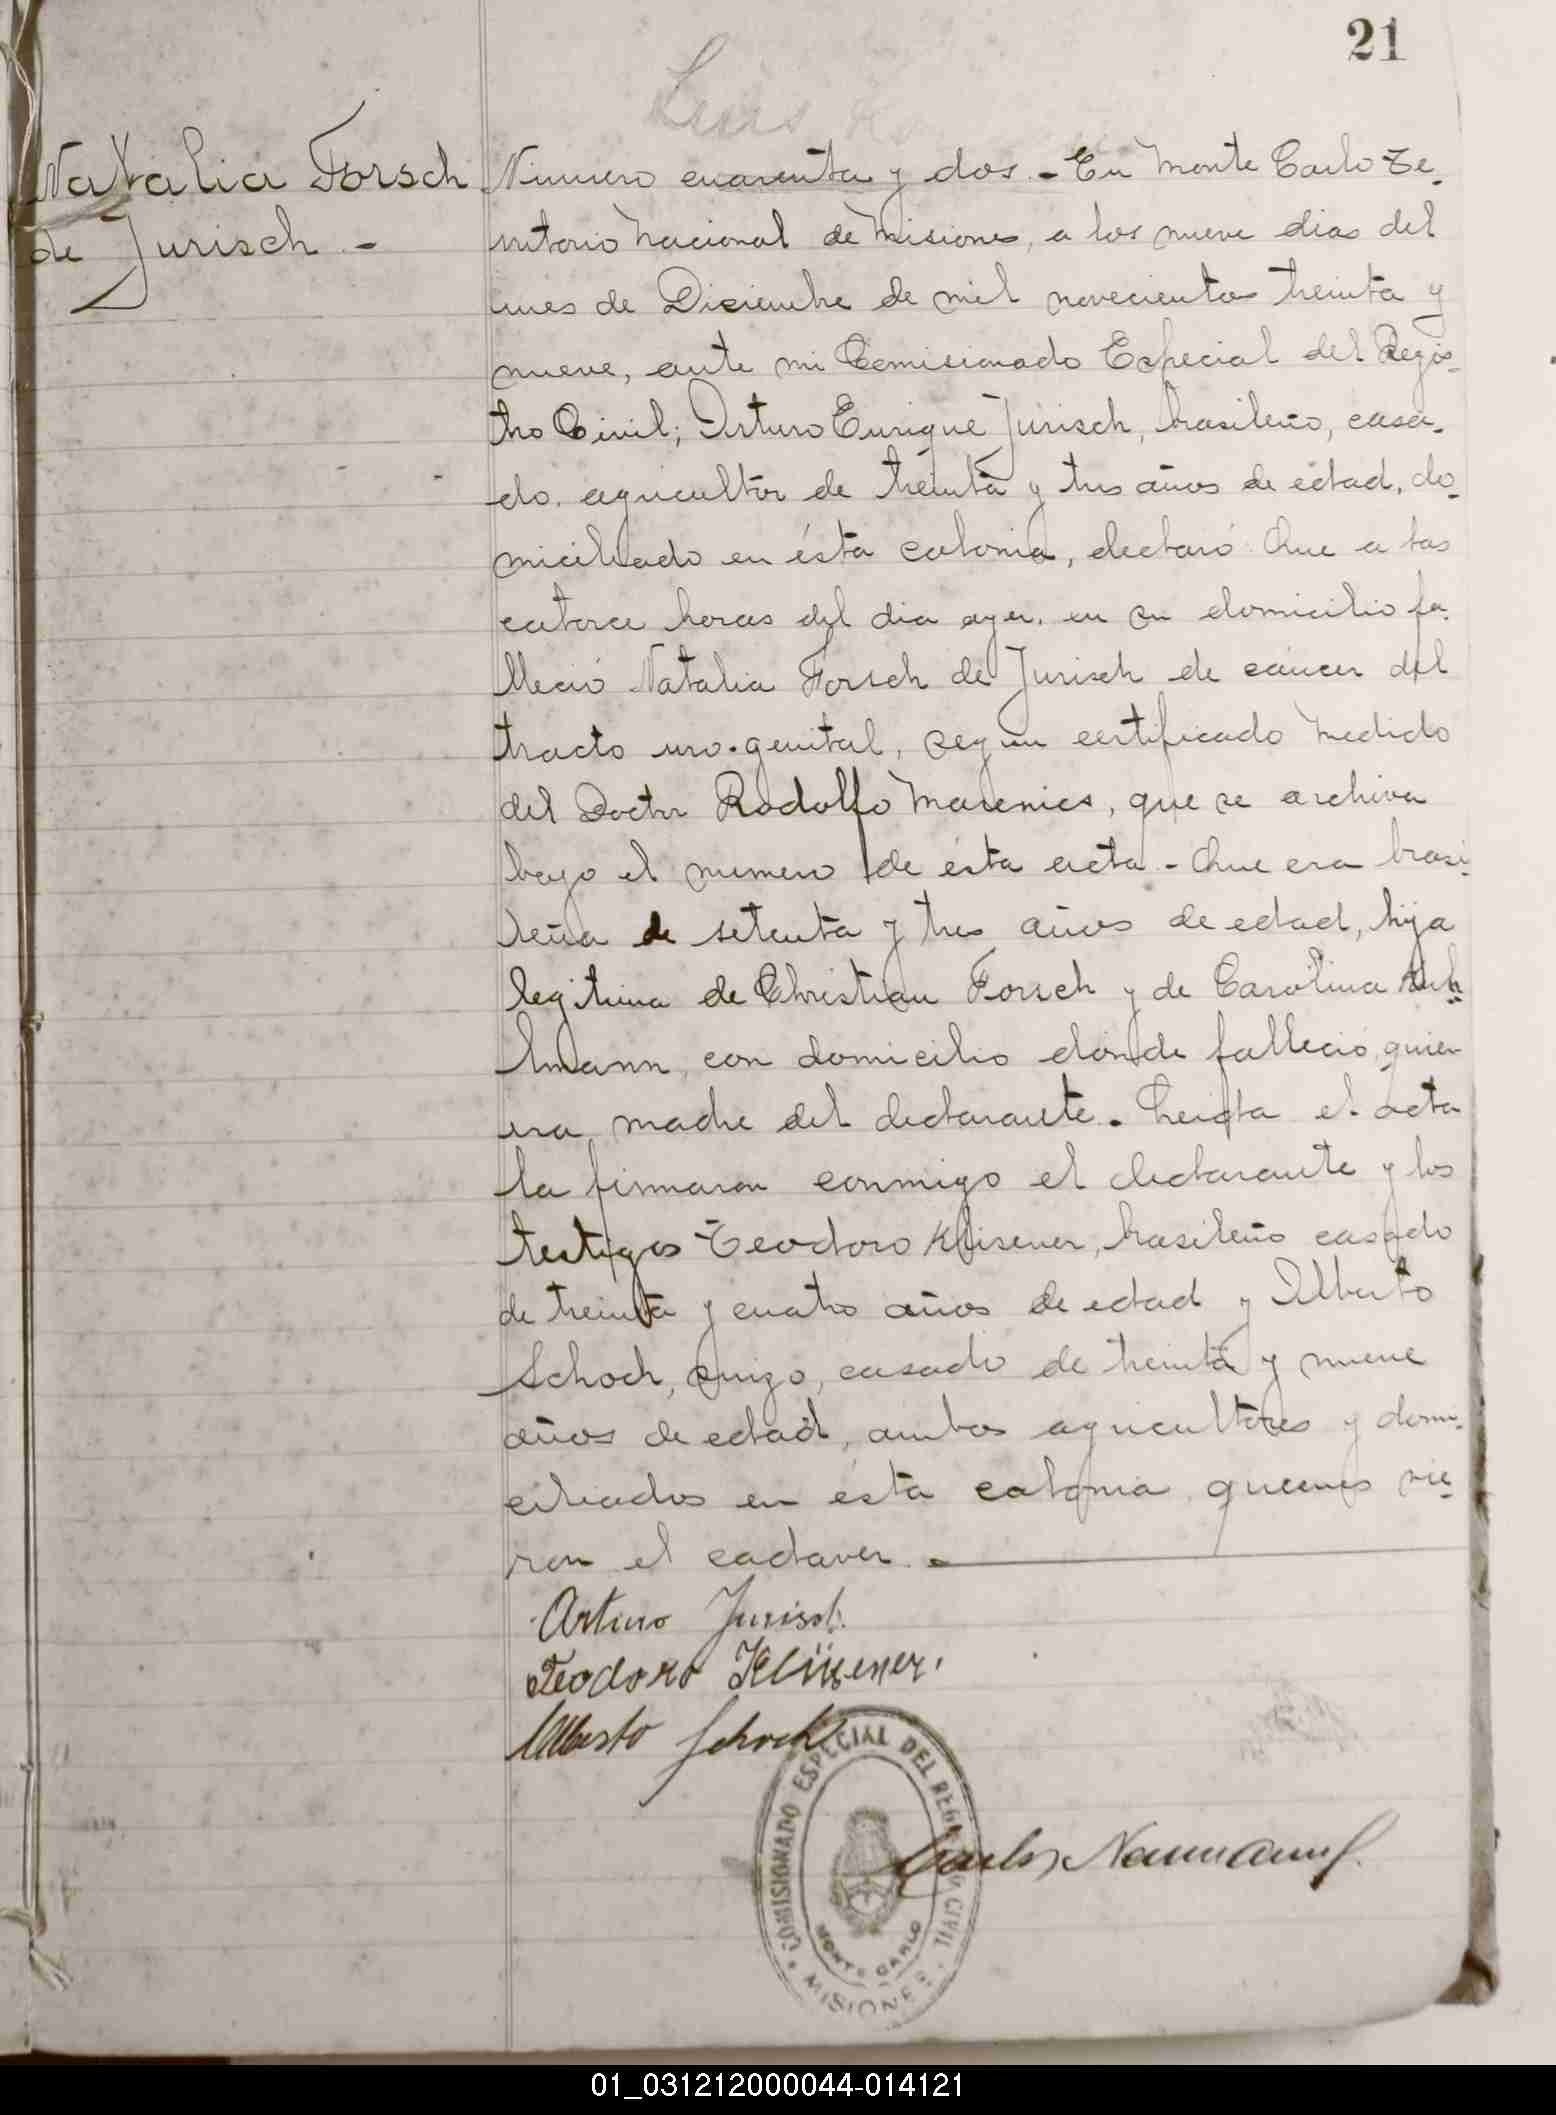 21
Luis
Natalia Forsch
de Jurisch -
Número cuarenta y dos - En Monte Carlo Te-
rritorio Nacional de Misiones, a los nueve dias del
mes de Diciembre de mil novecientos treinta y
nueve, ante mi Comisionado Especial del Regis-
tro Civil; Arturo Enrique Jurisch, brasileño, casa-
do, agricultor de treinta y tres años de edad, do-
miciliado en ésta colonia, declaró: Que a las
catorce horas del dia ayer, en su domicilio fa-
lleció Natalia Forsch de Jurisch de cáncer del
tracto uro-genital, segun certificado Medido
del Doctor Rodolfo que se archiva
bajo el numero de ésta acta - Que era brasi-
leña de setenta y tres años de edad, hija
legitima de Christian Forsch y de Carolina
lmann, con domicilio dónde falleció, quien
era madre del declarante. Leida el acta
la firmaron conmigo el declarante y los
testigos Teodoro Klisener, brasileño casado
de treinta y cuatro años de edad y Alberto
Schoch, suizo, casado de treinta y nueve
años de edad, ambos agricultores y domi-
ciliados en ésta colonia, quienes vie-
ron el cadaver. -
Arturo Jurisch.
Teodoro Klüsener.
Alberto Schoch
COMISIONADO ESPECIAL DEL REGISTRO CIVIL
MONTE CARLO
MISIONES
Carlos Naumann
01_031212000044-014121